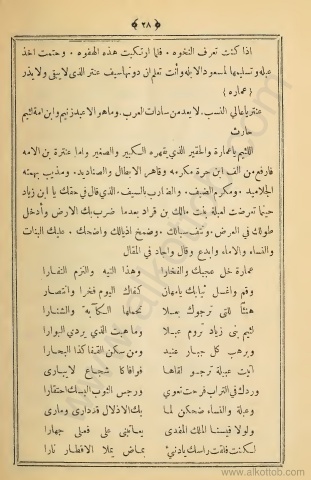 ﴿ ٢٨ ﴾
اذا كنت تعرف النخوه . فلما ارتكبت هذه الهفوه . وحتمت اخذ
عبله وتسليمها لمسعود الابله وأنت تعلم ان دونها سيف عنتر الذى لا يبقى ولا يذر
( عماره )
عنتر يا عالي النسب . لا يعد من سادات العرب . وما هو الا عبد زنيم وابن امة لئيم
حارث
اللئيم يا عمارة والحقير الذي يقهره الكبير والصغير واما عنترة بن الامه
فارفع من الف ابن حرة مكرمه وقاهر الابطال والصناديد . ومذيب بهمته
الجلاميد . ومكرم الضيف . والضارب بالسيف . الذي قال في حقك يا ابن زياد
حينما تعرضت لعبلة بنت مالك بن قراد بعدما ضرب بك الارض وأدخل
طولك في العرض . ونتف سبالك . وضمخ اذيالك واضحك . عليك البنات
والنساء والاماء وابدع وقال واجاد في المقال
عمارة خل عجبك والفخارا وهذا التيه والتزم النفارا
وقم واغسل ثيابك يا مهان كفاك اليوم فخرا وانتصار
هنئاً للتى ترجوك بعلا تحملها الكآبة والشنارا
لئيم بنى زياد تروم عبلا وما هبت الذي يردي البوارا
ويرهب كل جبار عنيد ومن سكن القفا كذا البحارا
اتيت عبلة ترجو لقاها فوافاكا شجاع لايبارى
وردك في التراب فرحت تعوي ورجس الثوب البسك احتقارا
وعبلة والنساء ضحكن لما بك الاذلال قد دارى ومارى
ولولا قيسنا الملك المفدى يعاتبنى على فعلى جهارا
لكنت فلقت رأسك يا دنيء بماض يملا الاقطار نارا
www.alkottob.com